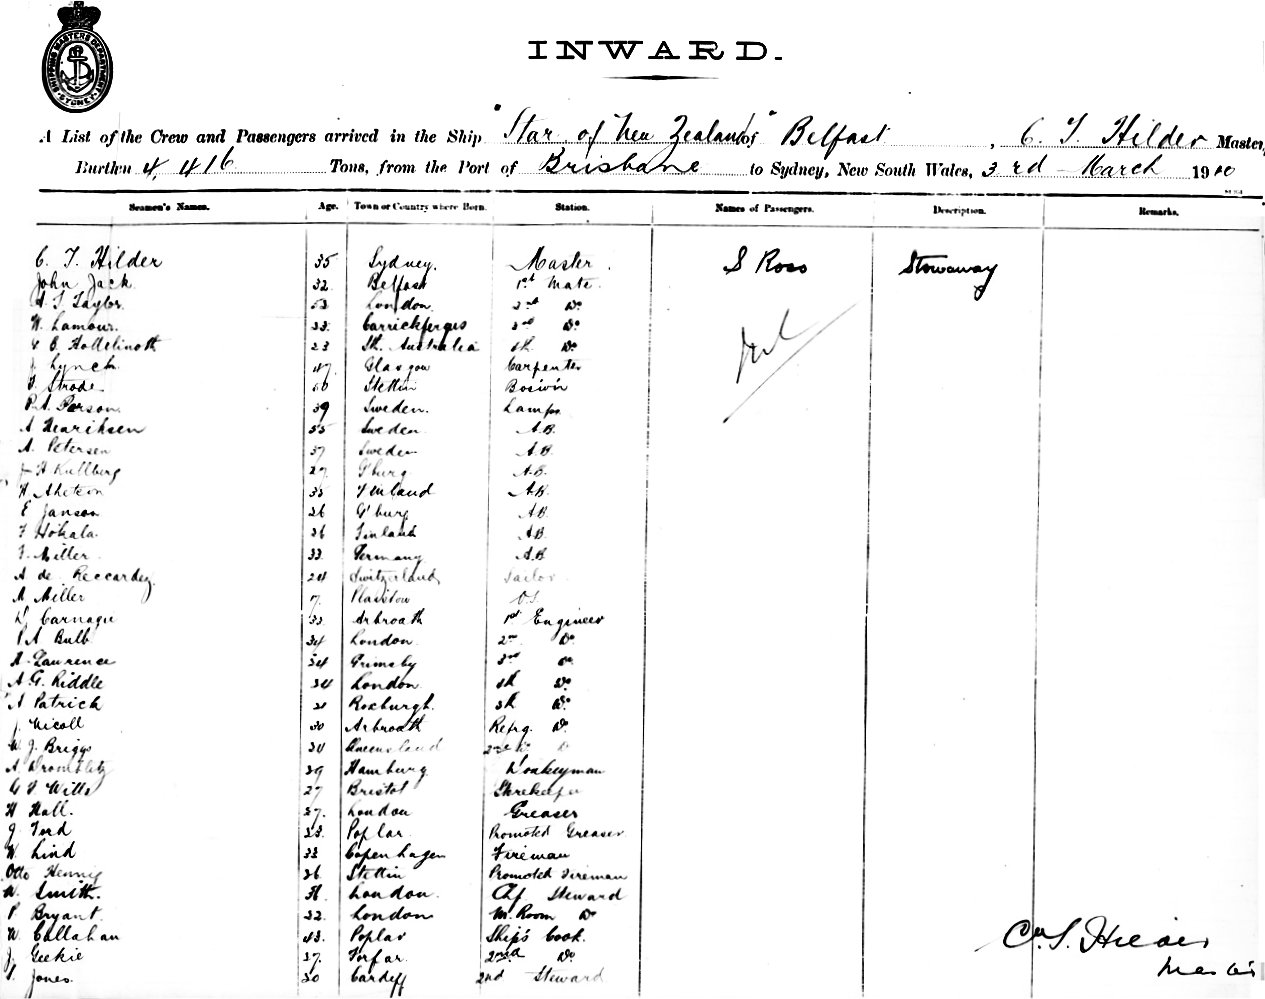 SHIPPING MASTERS DEPARTMENT SYDNEY
INWARD.
A List of the Crew and Passengers arrived in the Ship "Star of New Zealand" of Belfast, C. T. Hilder Master,
Burthen 4,416 Tons, from the Port of Brisbane to Sydney, New South Wales, 3rd March 1900
Seamen's Names. Age. Town or Country where Born. Station. Names of Passengers. Description. Remarks.
C. T. Hilder 35 Sydney. Master. S Ross Stowaway
John Jack 32 Belfast 1st Mate
Taylor 53 London 2nd Do
W. Lamour. 33. Carrickfergus 3rd Do
23 Sth. Australia 4th Do
J. Lynch 47 Glasgow Carpenter
Strode Stettin Bos'w'n
P.A. Person 39 Sweden. Lamps
A Henriksen 35 Sweden A.B.
A. Petersen 37 Sweden A.B.
J H Kullberg 27 G'burg A.B.
35 Finland A.B.
E Janson 26 G'burg A.B.
F Hokala 26 Finland A.B.
Miller 33 Germany A.B.
A de Reccardez 24 Switzerland Sailor
M Miller Plaistow O.S.
W. Carnagie 33 Arbroath 1st Engineer
P.A Bulb 34 London 2nd Do
A. Laurence 34 Grimsby 3rd Do
A. G. Riddle 34 London 4th Do
A Patrick Roxburgh. 5th Do
J. Nicoll 30 Arbroath Refrg. Do
W. J. Briggs 30 Queensland 2nd Do
A. 39 Hamburg Donkeyman
Wills 27 Bristol Storekeeper
H Hall. 27. London Greaser
J. Ford 23. Poplar Promoted Greaser
W. Lind 33 Copenhagen Fireman
Otto Hennig 26 Stettin Promoted Fireman
W. Smith. London. Chf Steward
P. Bryant. 32. London M. Room Do
W. Callahan 43. Poplar Ship's Cook.
J. Geekie 27. Forfar 2nd Do
Jones. 30 Cardiff 2nd Steward
Hilder
Master